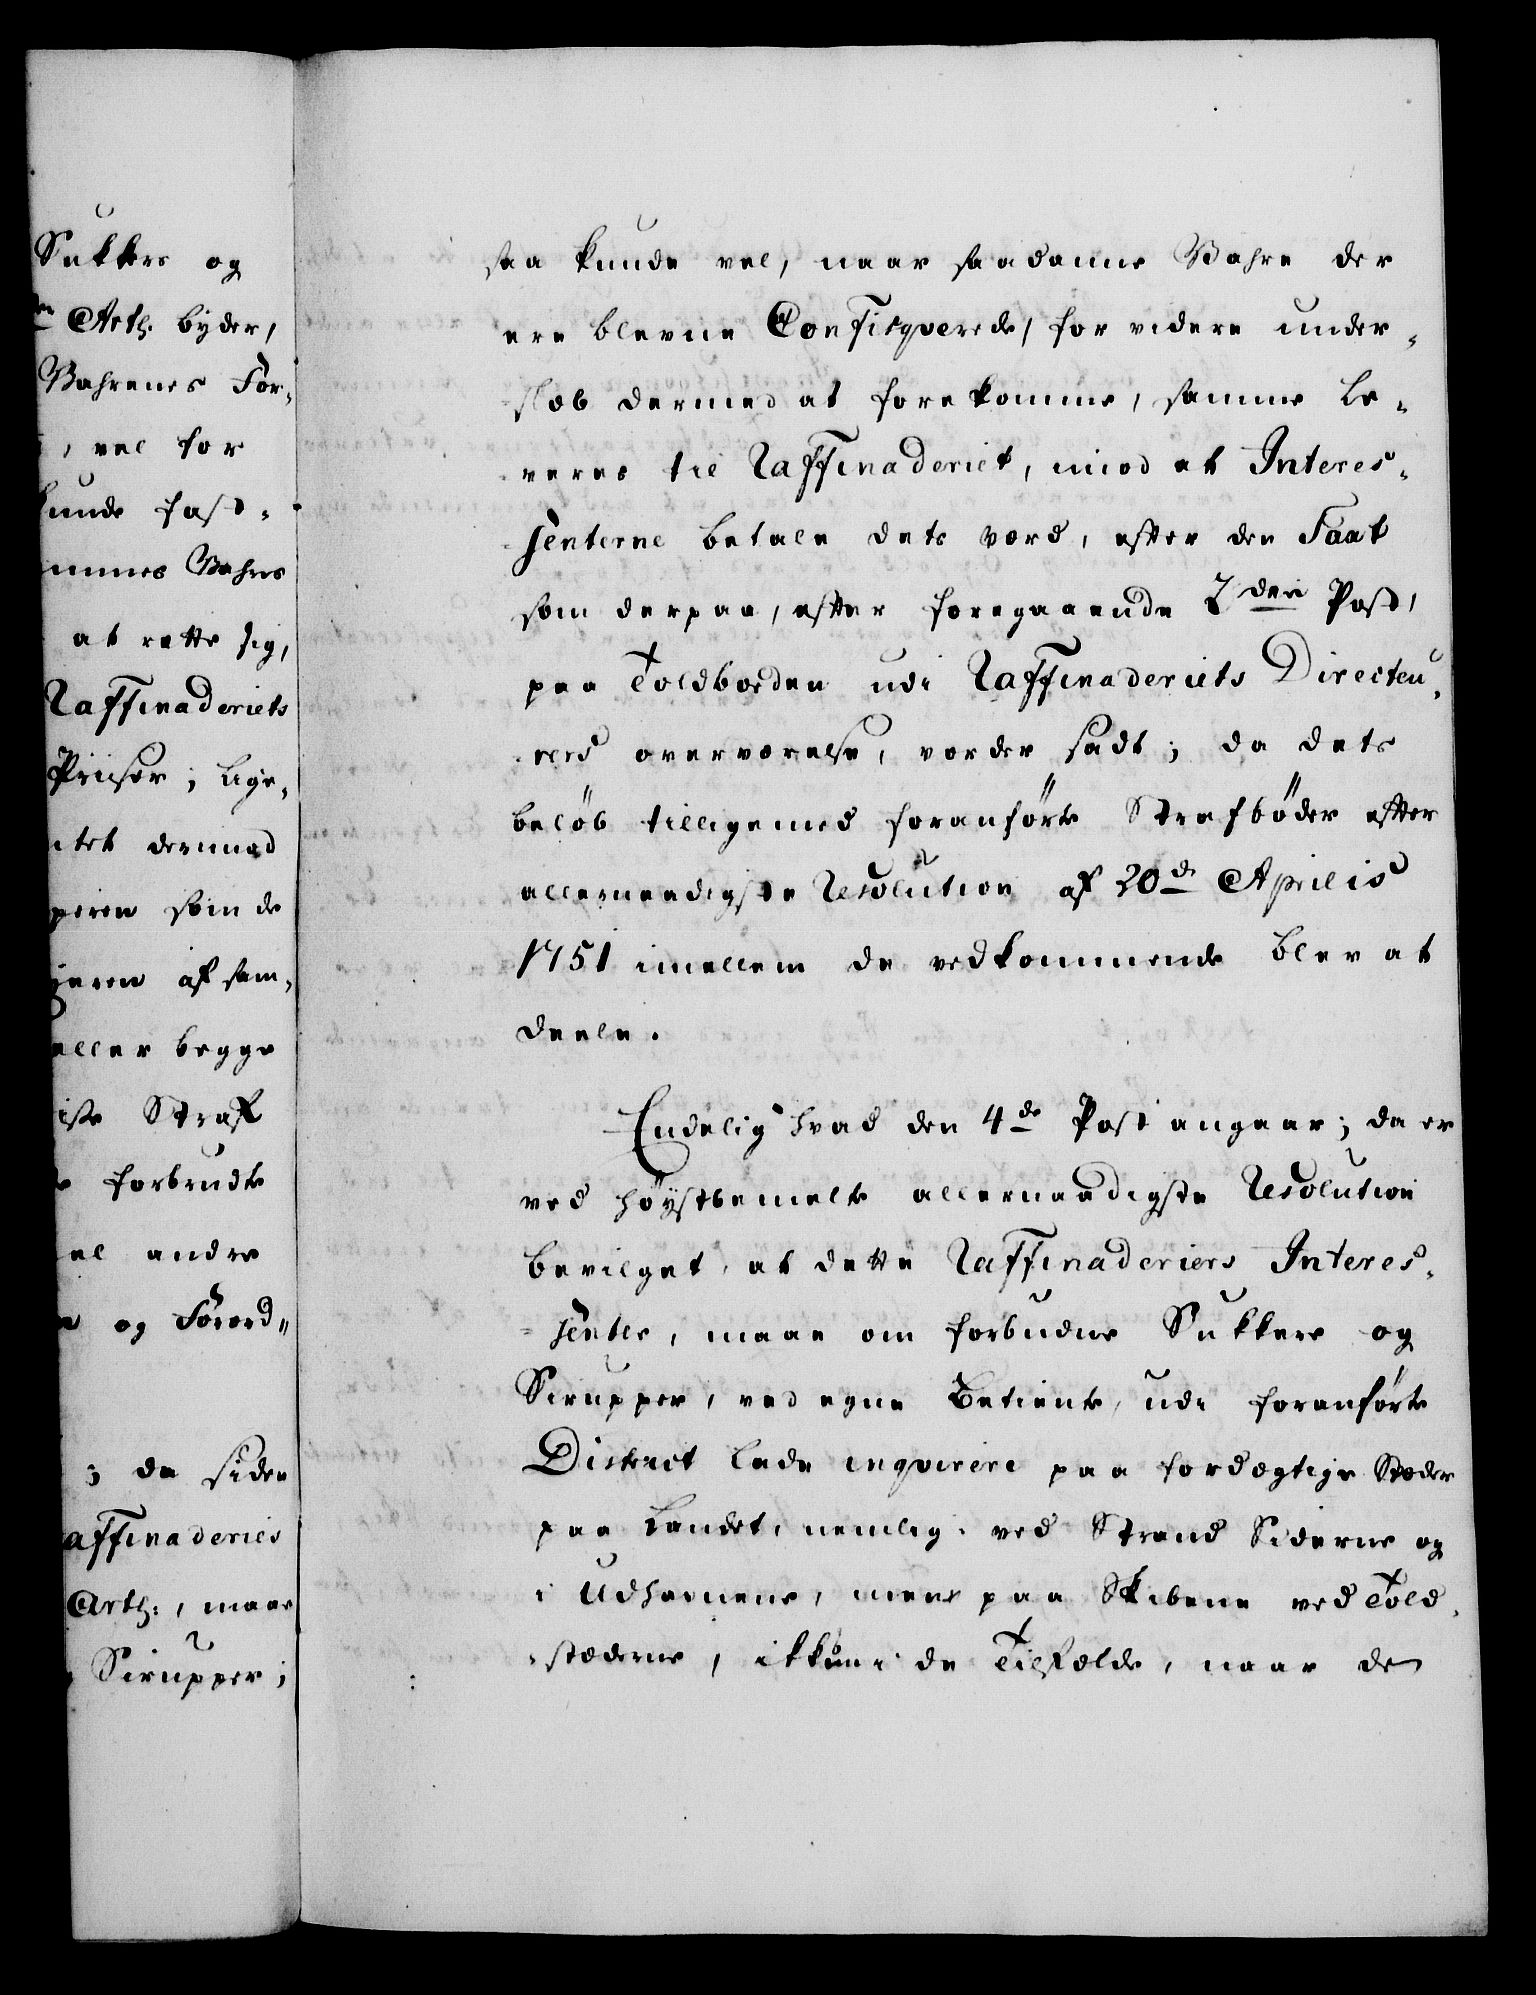 Sukkers og
Arth: byder,
Vahrenes For-
, vel for
kunde fast-
mmes Vahres
at rette sig,
Raffinaderiets
Priiser; lige-
itet dermed
peren som de
yeren af sam-
eller begge
ise Straf
forbrudt
el andre
og Forord-
; da siden
affinaderies
Arth:, maae
Sirupper;
saa kunde vel, naar saadanne Vahre der
ere blevne Confisqverede, for videre under-
slæb dermed at forekomme, samme le-
veres til Raffinaderiet, imod at Interes-
senterne betale dets værd, efter den Taxt
som derpaa, efter foregaaende 2den Post,
paa Toldboeden udi Raffinaderiets Directeu-
rers overværelse, vorder sadt; da dets
beløb tilligemed foranførte Strafbøder efter
allernaadigste Resolution af 20de Aprilis
1751 imellem de vedkommende blev at
deele.
Endelig hvad den 4de Post angaar; da er
ved høystbemelte allernaadigste Resolution
bevilget, at dette Raffinaderiers Interes-
senter, maae om forbudne Sukkere og
Sirupper, ved egne Betiente, udi foranførte
District lade inqvirere paa fordægtige Stæder
paa Landet, nemlig: ved Strand Siderne og
i Udhavnene, mens paa Skibene ved Told-
stæderne, ikkun i de Tilfælde, naar de